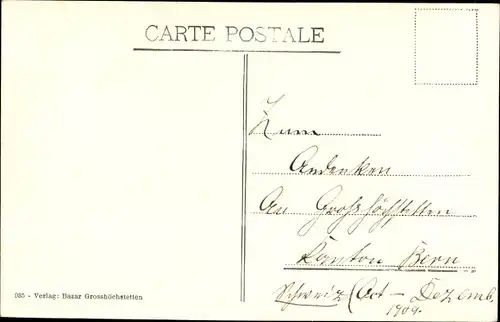 CARTE POSTALE
Zum
Andenken
An Großhöchstetten
Kanton Bern
Schweiz (Oct – Dezemb.
1909.
935 - Verlag: Bazar Grosshöchstetten